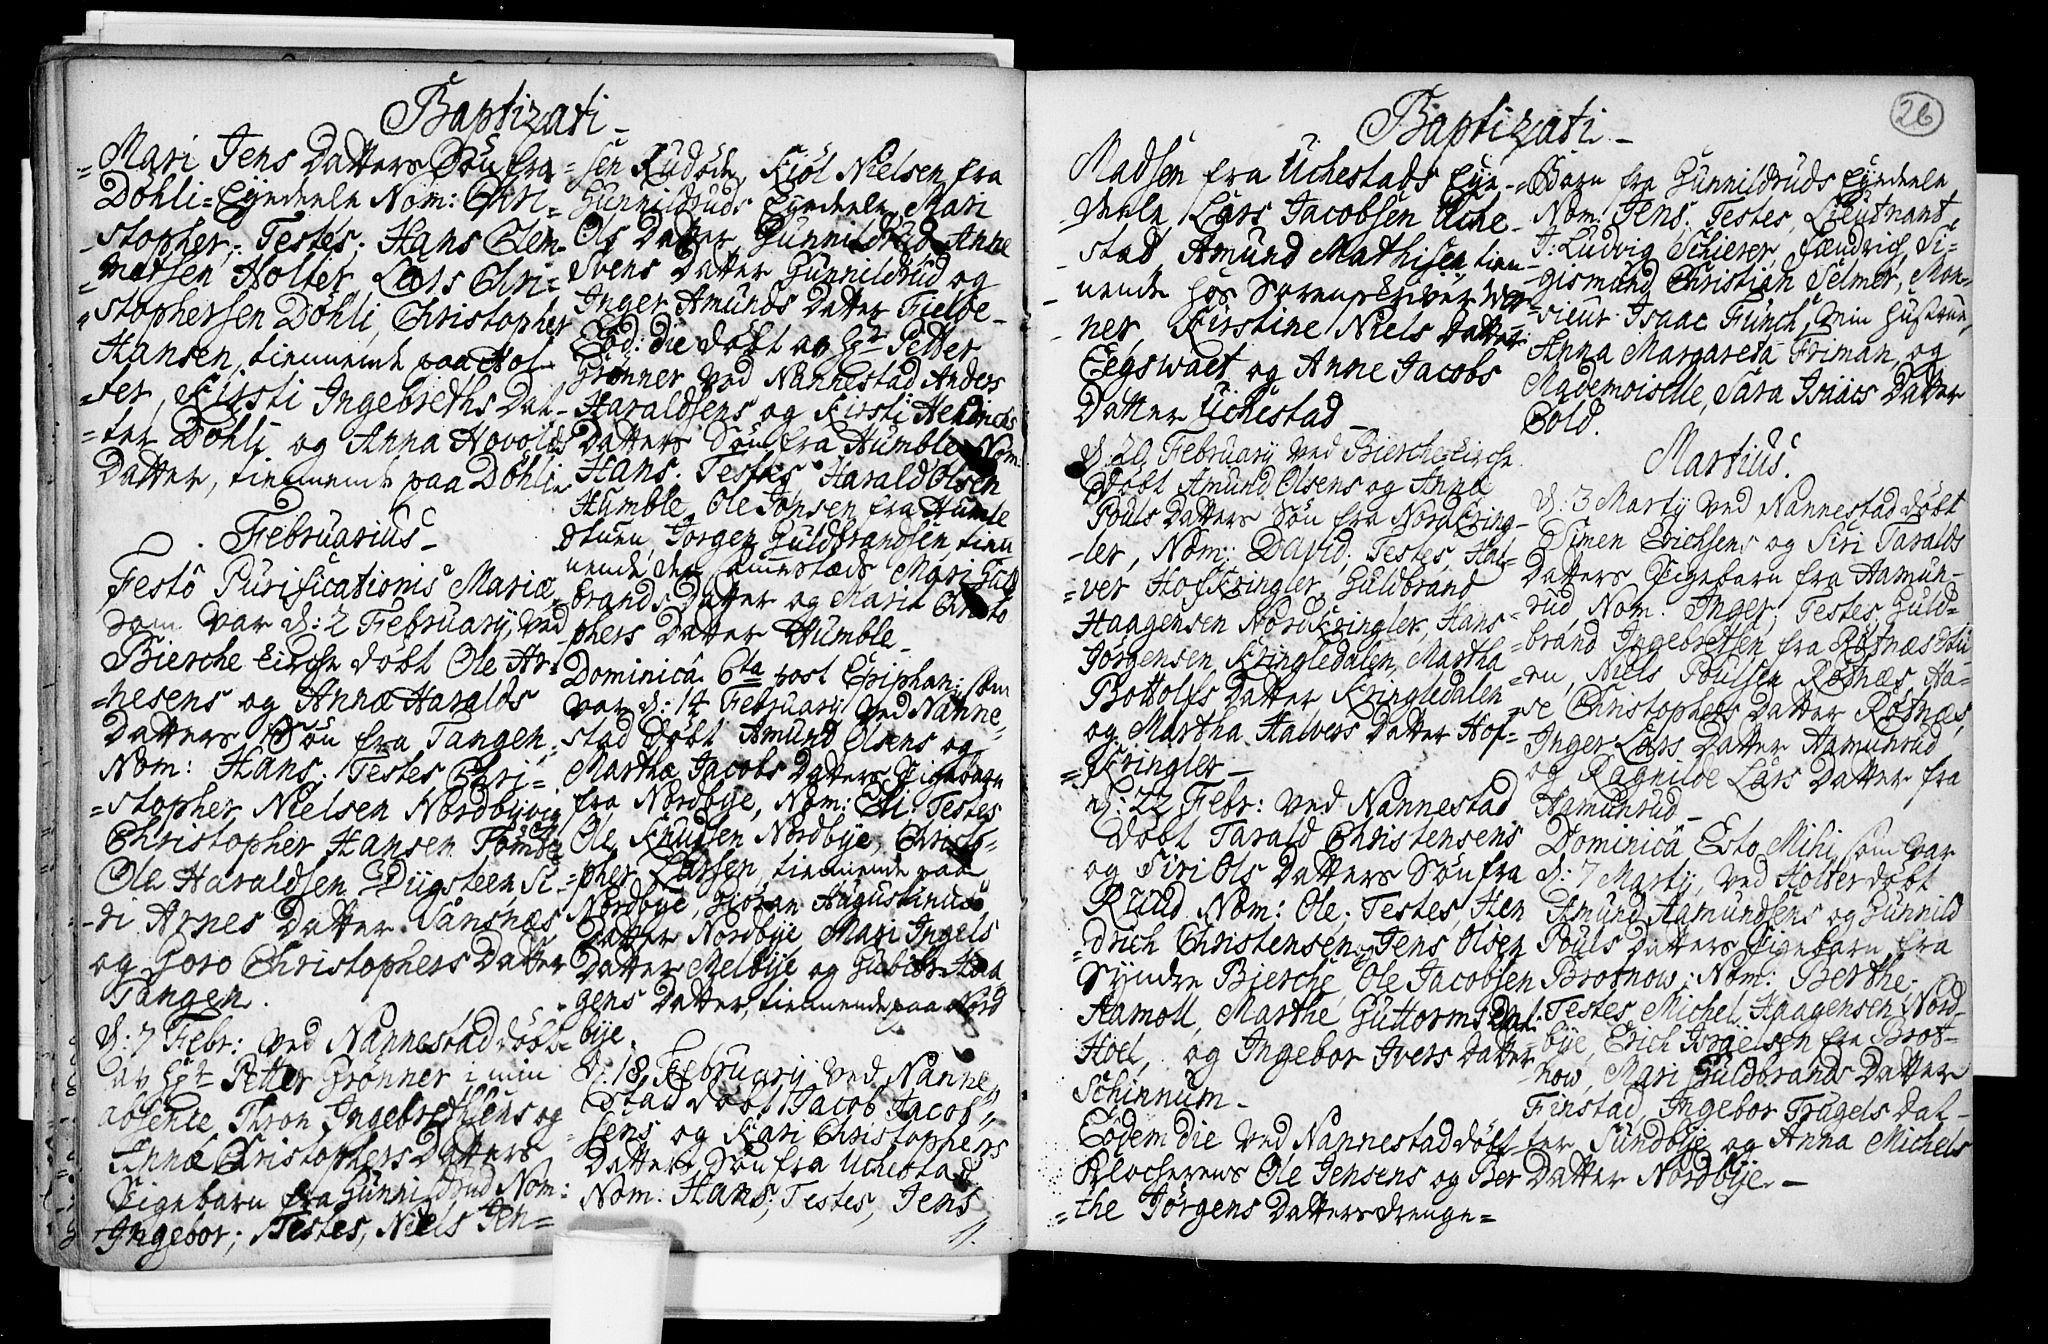 Baptizati
Mari Jens Datters Søn fra
Döhli-Eyedeele Nom: Chri-
stopher; Testes, Hans Clem-
metsen Holter, Lars Chri-
stophersen Döhli, Christopher
Hansen, tiennende paa Hol-
ter, Kirsti Ingebreths Dat-
ter Döhli og Anna Hovolds
Datter, tiennende paa Döhli
Februarius
Festô Purificationis Mariæ,
som var d: 2 February, ved
Bierche Kirche döbt Ole Ar-
nesens og Anna Haralds
Datters Søn fra Tangen,
Nom: Hans. Testes Chri-
stopher Nielsen Nordbyvig
Christopher Hansen Tömte
Ole Haraldsen Digsteen, Si-
ri Arnes Datter Vansnæs
og Goro Christophers Datter
Tangen.
d: 7 Febr: ved Nannestad döbt
av Hr Petter Grønner i min
absence, Thron Ingebrethsens og
Anna Christophers Datters
Pigebarn fra Gunnildrud Nom:
Ingebor; Testes, Niels Jen-
sen Rudöde, Kiöl Nielsen fra
Gunnildruds Eyedeele, Mari
Ols Datter Gunnildrud Anne
Svens Datter Gunnildrud og
Inger Amunds Datter Fielde
Eod: die döbt av Hr Petter
Grønner ved Nannestad Anders
Haraldsens og Kirsti Hendrichs
Datters Søn fra Humble Nom:
Hans. Testes Harald Olsen
Humble, Ole Jonsen fra Humle
Stuen, Jørgen Guldbrandsen tien
nende der sammestæds Mari Guld
brands Datter og Maria Christo
phers Datter Humble.
Dominica 6ta post Epiphan: som
var d: 14 February ved Nanne-
stad döbt Amund Olsens og
Martha Jacobs Datters Pigebarn
fra Nordbye, Nom: Eli. Testes
Ole Knudsen Nordbye, Christo-
pher Larsen, tiennende paa
Nordbye, Giöran Augustinus
Datter Nordbye, Mari Ingels
Datter Melbye og Gubiör Haa
gens Datter, tiennende paa Nord
bye.
d: 18 February ved Nanne
stad döbt Jacob Jacob-
sens og Kari Christophers
Datters Søn fra Uchestad
Nom: Hans; Testes, Jens
Baptizati
26
Madsen fra Uchestads Eye-
deele, Lars Jacobsen Uche-
stad, Amund Mathisen tien-
nende hos Sorenskriver Wer
ner, Kirstine Niels Datter
Eegswaet og Anne Jacobs
Datter Uchestad
d: 20 February ved Bierche Kirche
döbt Amund Olsens og Anna
Pouls Datters Søn fra Nordkring-
ler, Nom: David; Testes, Hal-
ver Hofkringler, Guldbrand
Haagensen Nordkringler, Hans
Jørgensen Kringledalen, Martha
Bottolfs Datter Kringledalen
og Martha Halvers Datter Hof-
kringler
d: 22 Febr: ved Nannestad
döbt Tarald Christensens
og Siri Ols Datters Søn fra
Ruud Nom: Ole. Testes, Hen
drich Christensen og Jens Olsen
Syndre Bierche Ole Jacobsen
Hamoll, Marthe Guttorms Dat:
Hoel, og Ingebor Ivers Datter
Schinnum
Eodem die ved Nannestad döbt
Klocherens Ole Jensens og Ber
the Jørgens Datters drenge-
Barn fra Gunnildruds Eyedeele
Nom: Jens. Testes, Lieutnant
J: Ludvig Schierer, Fændrich Si-
gismund Christian Selmer, Mon-
sieur Isaac Funch, min Hustrue,
Anna Margareta Friman, og
Mademoiselle, Sara Isaacs Datter
Bold.
Martius.
d: 3 Marty ved Nannestad döbt
Simen Erichsens og Siri Taralds
Datters Pigebarn fra Aamun-
rud Nom. Inger; Testes, Guld-
brand Ingebretsen fra Røtnæs Stu-
en, Niels Poulsen Røtnæs Ha-
se Christophers Datter Røtnæs,
Inger Lars Datter Aamunrud
og Ragnilde Lars Datter fra
Aamunrud
Dominica Esto Mihi, som var
d: 7 Marty, ved Holter döbt
Amund Aamundsens og Gunnild
Pouls Datters Pigebarn fra
Brotnow; Nom: Berthe.
Testes Michel Haagensen Nord-
bye, Erich Israelsen fra Brot-
now, Mari Guldbrands Datter
Finstad, Ingebor Trugels Dat-
ter Sundbye og Anna Michels
Datter Nordbye.